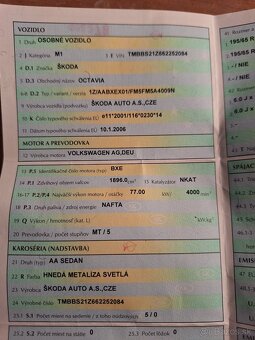 VOZIDLO
1 Druh OSOBNÉ VOZIDLO
2 J Kategória M1 3 E VIN TMBBS21Z662252084
4 D.1 Značka ŠKODA
5 D.3 Obchodný názov OCTAVIA
6-8 D.2 Typ / variant / verzia 1Z/AABXEX01/FM5FM5A4009N
9 Výrobca vozidla (podvozku) ŠKODA AUTO A.S.,CZE
10 K Číslo typového schválenia EÚ e11*2001/116*0230*14
11 Dátum typového schválenia EÚ 10.1.2006
MOTOR A PREVODOVKA
12 Výrobca motora VOLKSWAGEN AG,DEU
13 P.5 Identifikačné číslo motora BXE
14 P.1 Zdvihový objem valcov 1896.0 cm³ 15 Katalyzátor NKAT
16-17 P.2/P.4 Najväčší výkon motora / otáčky 77.00 kW/ 4000 min⁻¹
18 P.3 Druh paliva / zdroj energie NAFTA
19 Q Výkon / hmotnosť (kat. L) kW/kg
20 Prevodovka / počet stupňov MT / 5
KAROSÉRIA (NADSTAVBA)
21 Druh (typ) AA SEDAN
22 R Farba HNEDÁ METALÍZA SVETLÁ
23 Výrobca ŠKODA AUTO A.S.,CZE
24 Výrobné číslo TMBBS21Z662252084
25 S.1 Počet miest na sedenie / z toho núdzových 5 / 0
25.1 S.2 Počet miest na státie 0 25.3 Počet lôžok 0